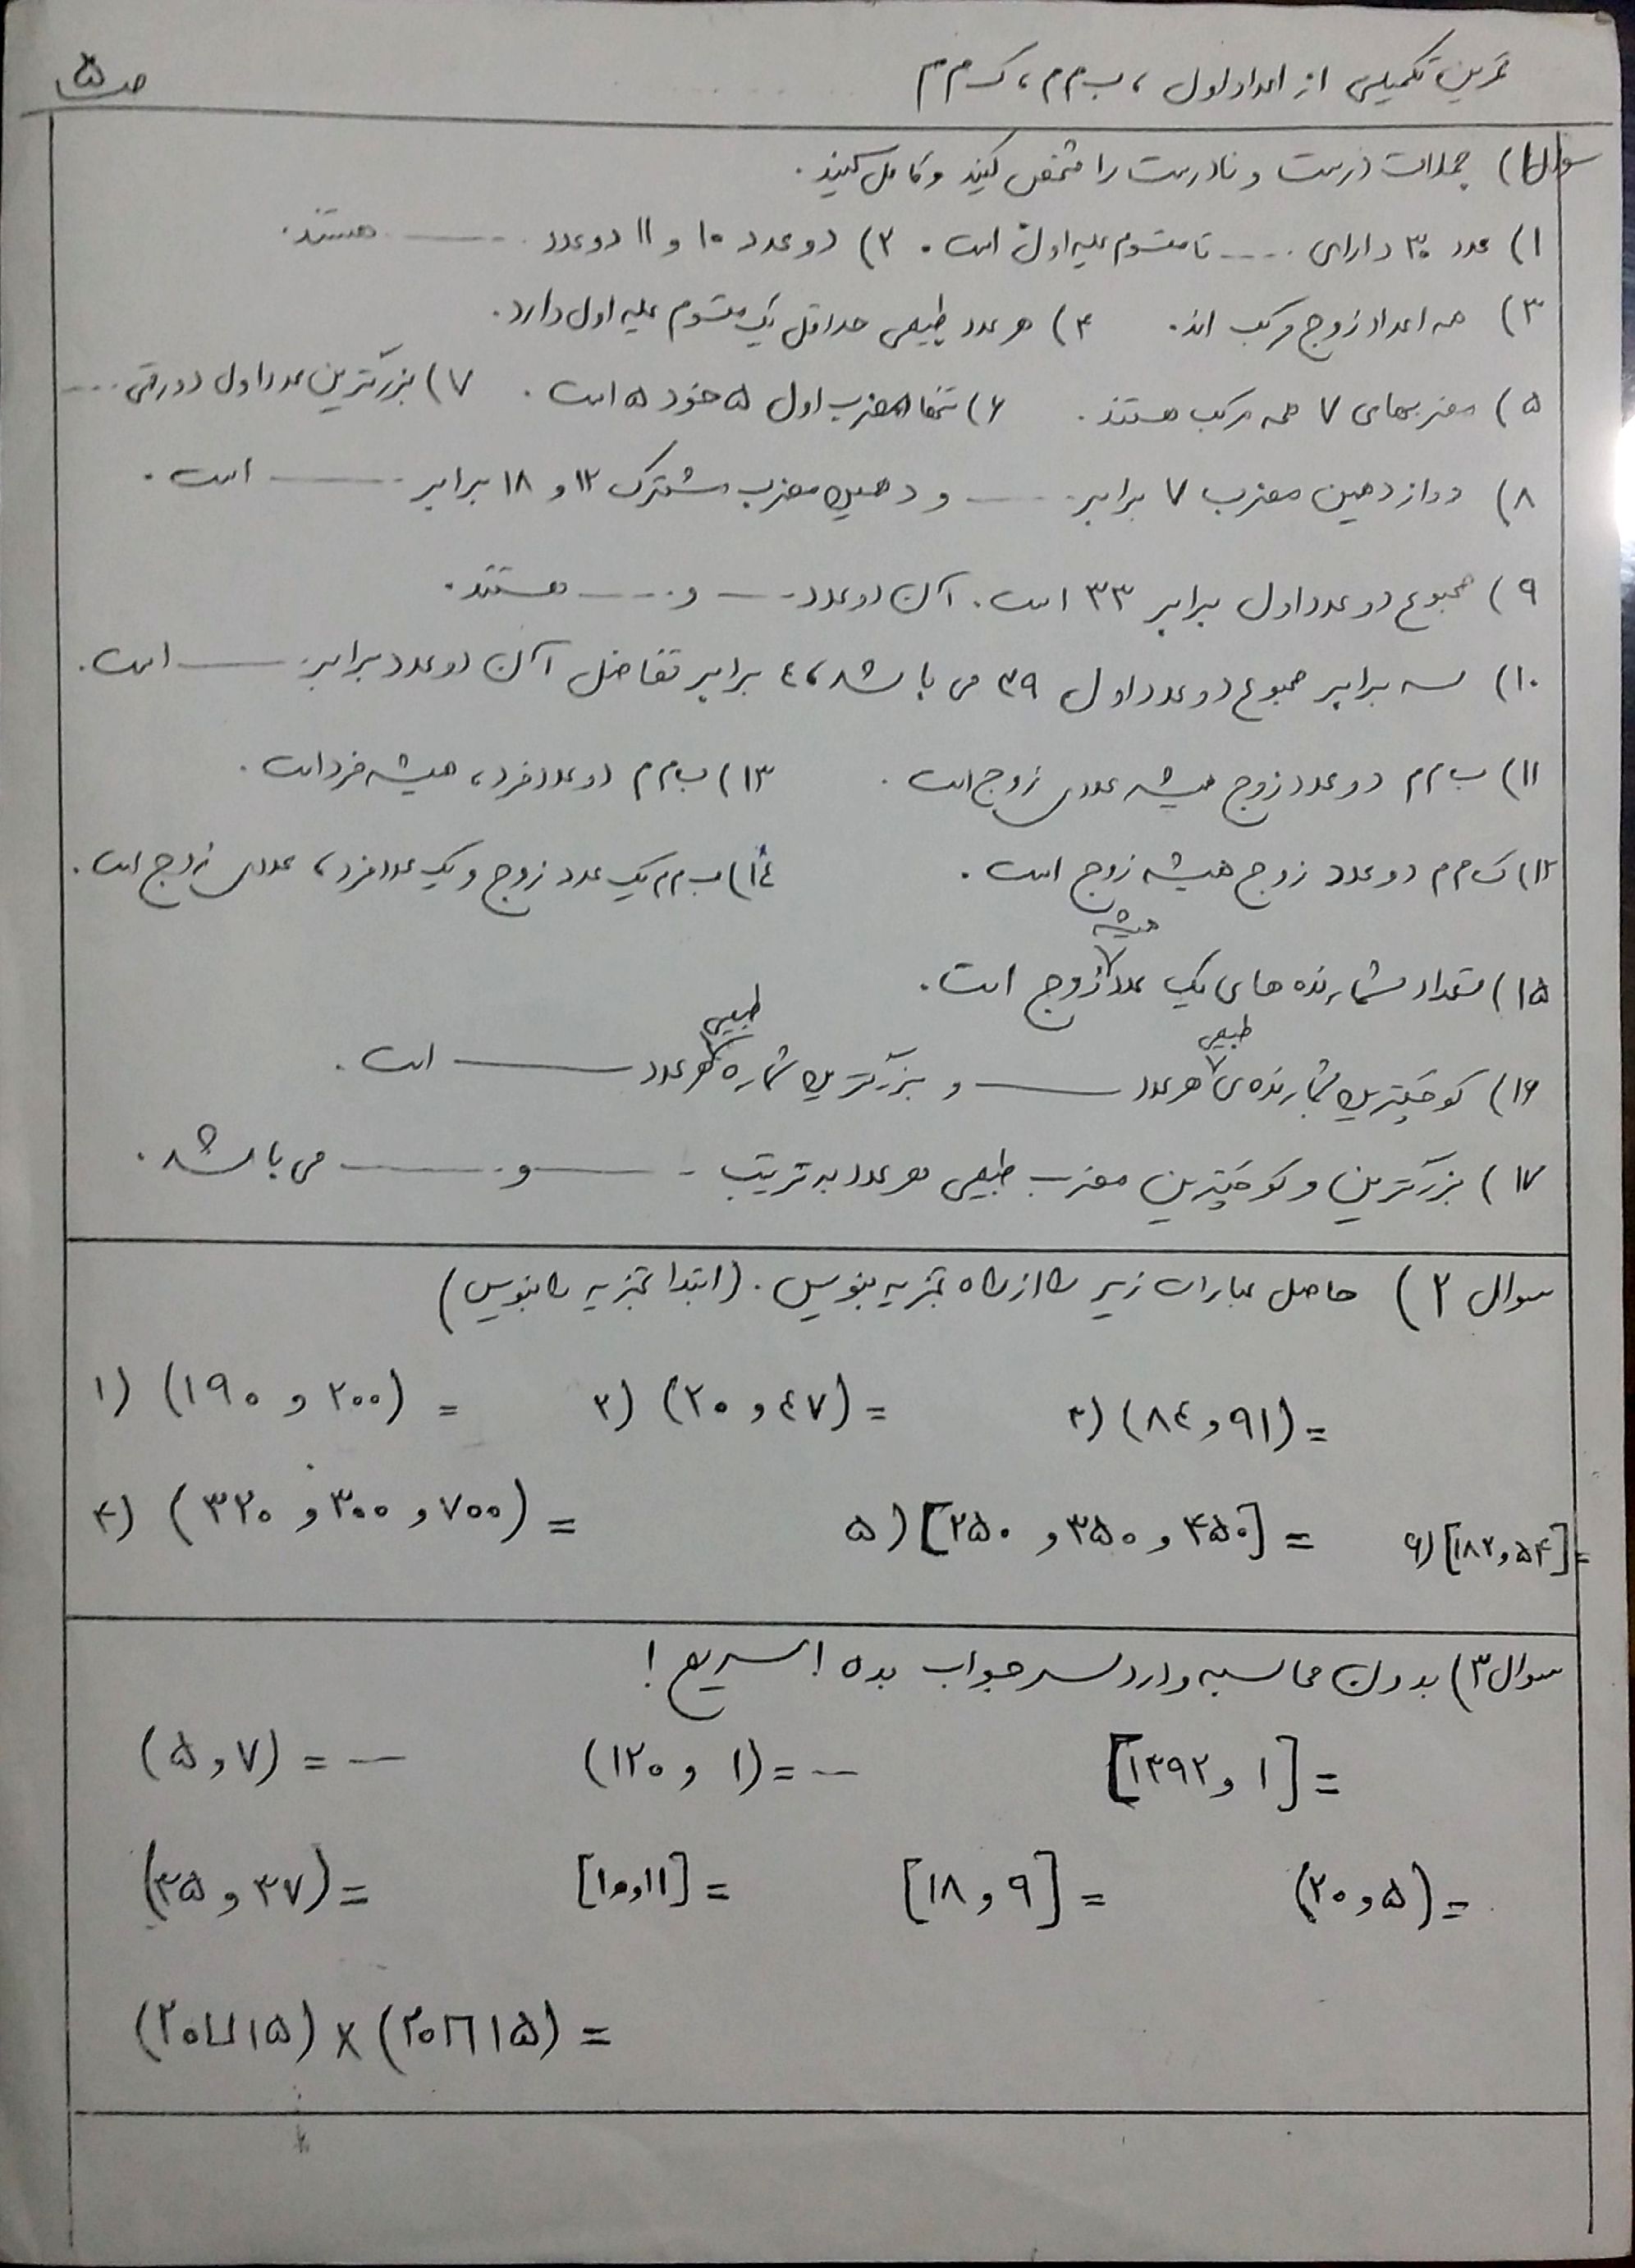 تمرین تکمیلی از اعداد اول ، ب م م ، ک م م
ص ۵
سوال ۱) جملات درست و نادرست را مشخص کنید و کامل کنید.
۱) عدد ۳۰ دارای ..... تا مقسوم علیه اول است. ۲) دو عدد ۱۰ و ۱۱ دو عدد ........ هستند.
۳) همه اعداد زوج مرکب اند. ۴) هر عدد طبیعی حداقل یک مقسوم علیه اول دارد.
۵) مضربهای ۷ همه مرکب هستند. ۶) تنها مضرب اول ۵ خود ۵ است. ۷) بزرگترین عدد اول دورقمی .....
۸) دوازدهمین مضرب ۷ برابر ........ و دهمین مضرب مشترک ۱۲ و ۱۸ برابر ........ است.
۹) مجموع دو عدد اول برابر ۳۳ است. آن دو عدد ..... و ..... هستند.
۱۰) سه برابر مجموع دو عدد اول ۳۹ می باشد، ٤ برابر تفاضل آن دو عدد برابر ........ است.
۱۱) ب م م دو عدد زوج همیشه عددی زوج است. ۱۳) ب م م دو عدد فرد، همیشه فرد است.
۱۲) ک م م دو عدد زوج همیشه زوج است. ۱٤) ب م م یک عدد زوج و یک عدد فرد، عددی زوج است.
۱۵) تعداد شمارنده های یک عدد همیشه زوج است.
۱۶) کوچکترین شمارنده ی هر عدد طبیعی ........ و بزرگترین شمارنده هر عدد طبیعی ........ است.
۱۷) بزرگترین و کوچکترین مضرب طبیعی هر عدد به ترتیب ........ و ........ می باشد.
سوال ۲) حاصل عبارات زیر را از راه تجزیه بنویس. (ابتدا تجزیه را بنویس)
۱) (۱۹۰ و ۲۰۰) = ۲) (۲۰ و ٤۷) = ۳) (۸٤ و ۹۱) =
۴) (۳۲۰ و ۳۰۰ و ۷۰۰) = ۵) [۲۵۰ و ۳۵۰ و ۴۵۰] = ۶) [۱۸۲ و ۵۴] =
سوال ۳) بدون محاسبه وارد سر جواب بده! سریع!
(۵ و ۷) = — (۱۲۰ و ۱) = — [۱۳۹۲ و ۱] =
(۳۵ و ۳۷) = [۱۰ و ۱۱] = [۱۸ و ۹] = (۲۰ و ۵) =
(۲۰⊔۱۵) × (۲۰⊓۱۵) =